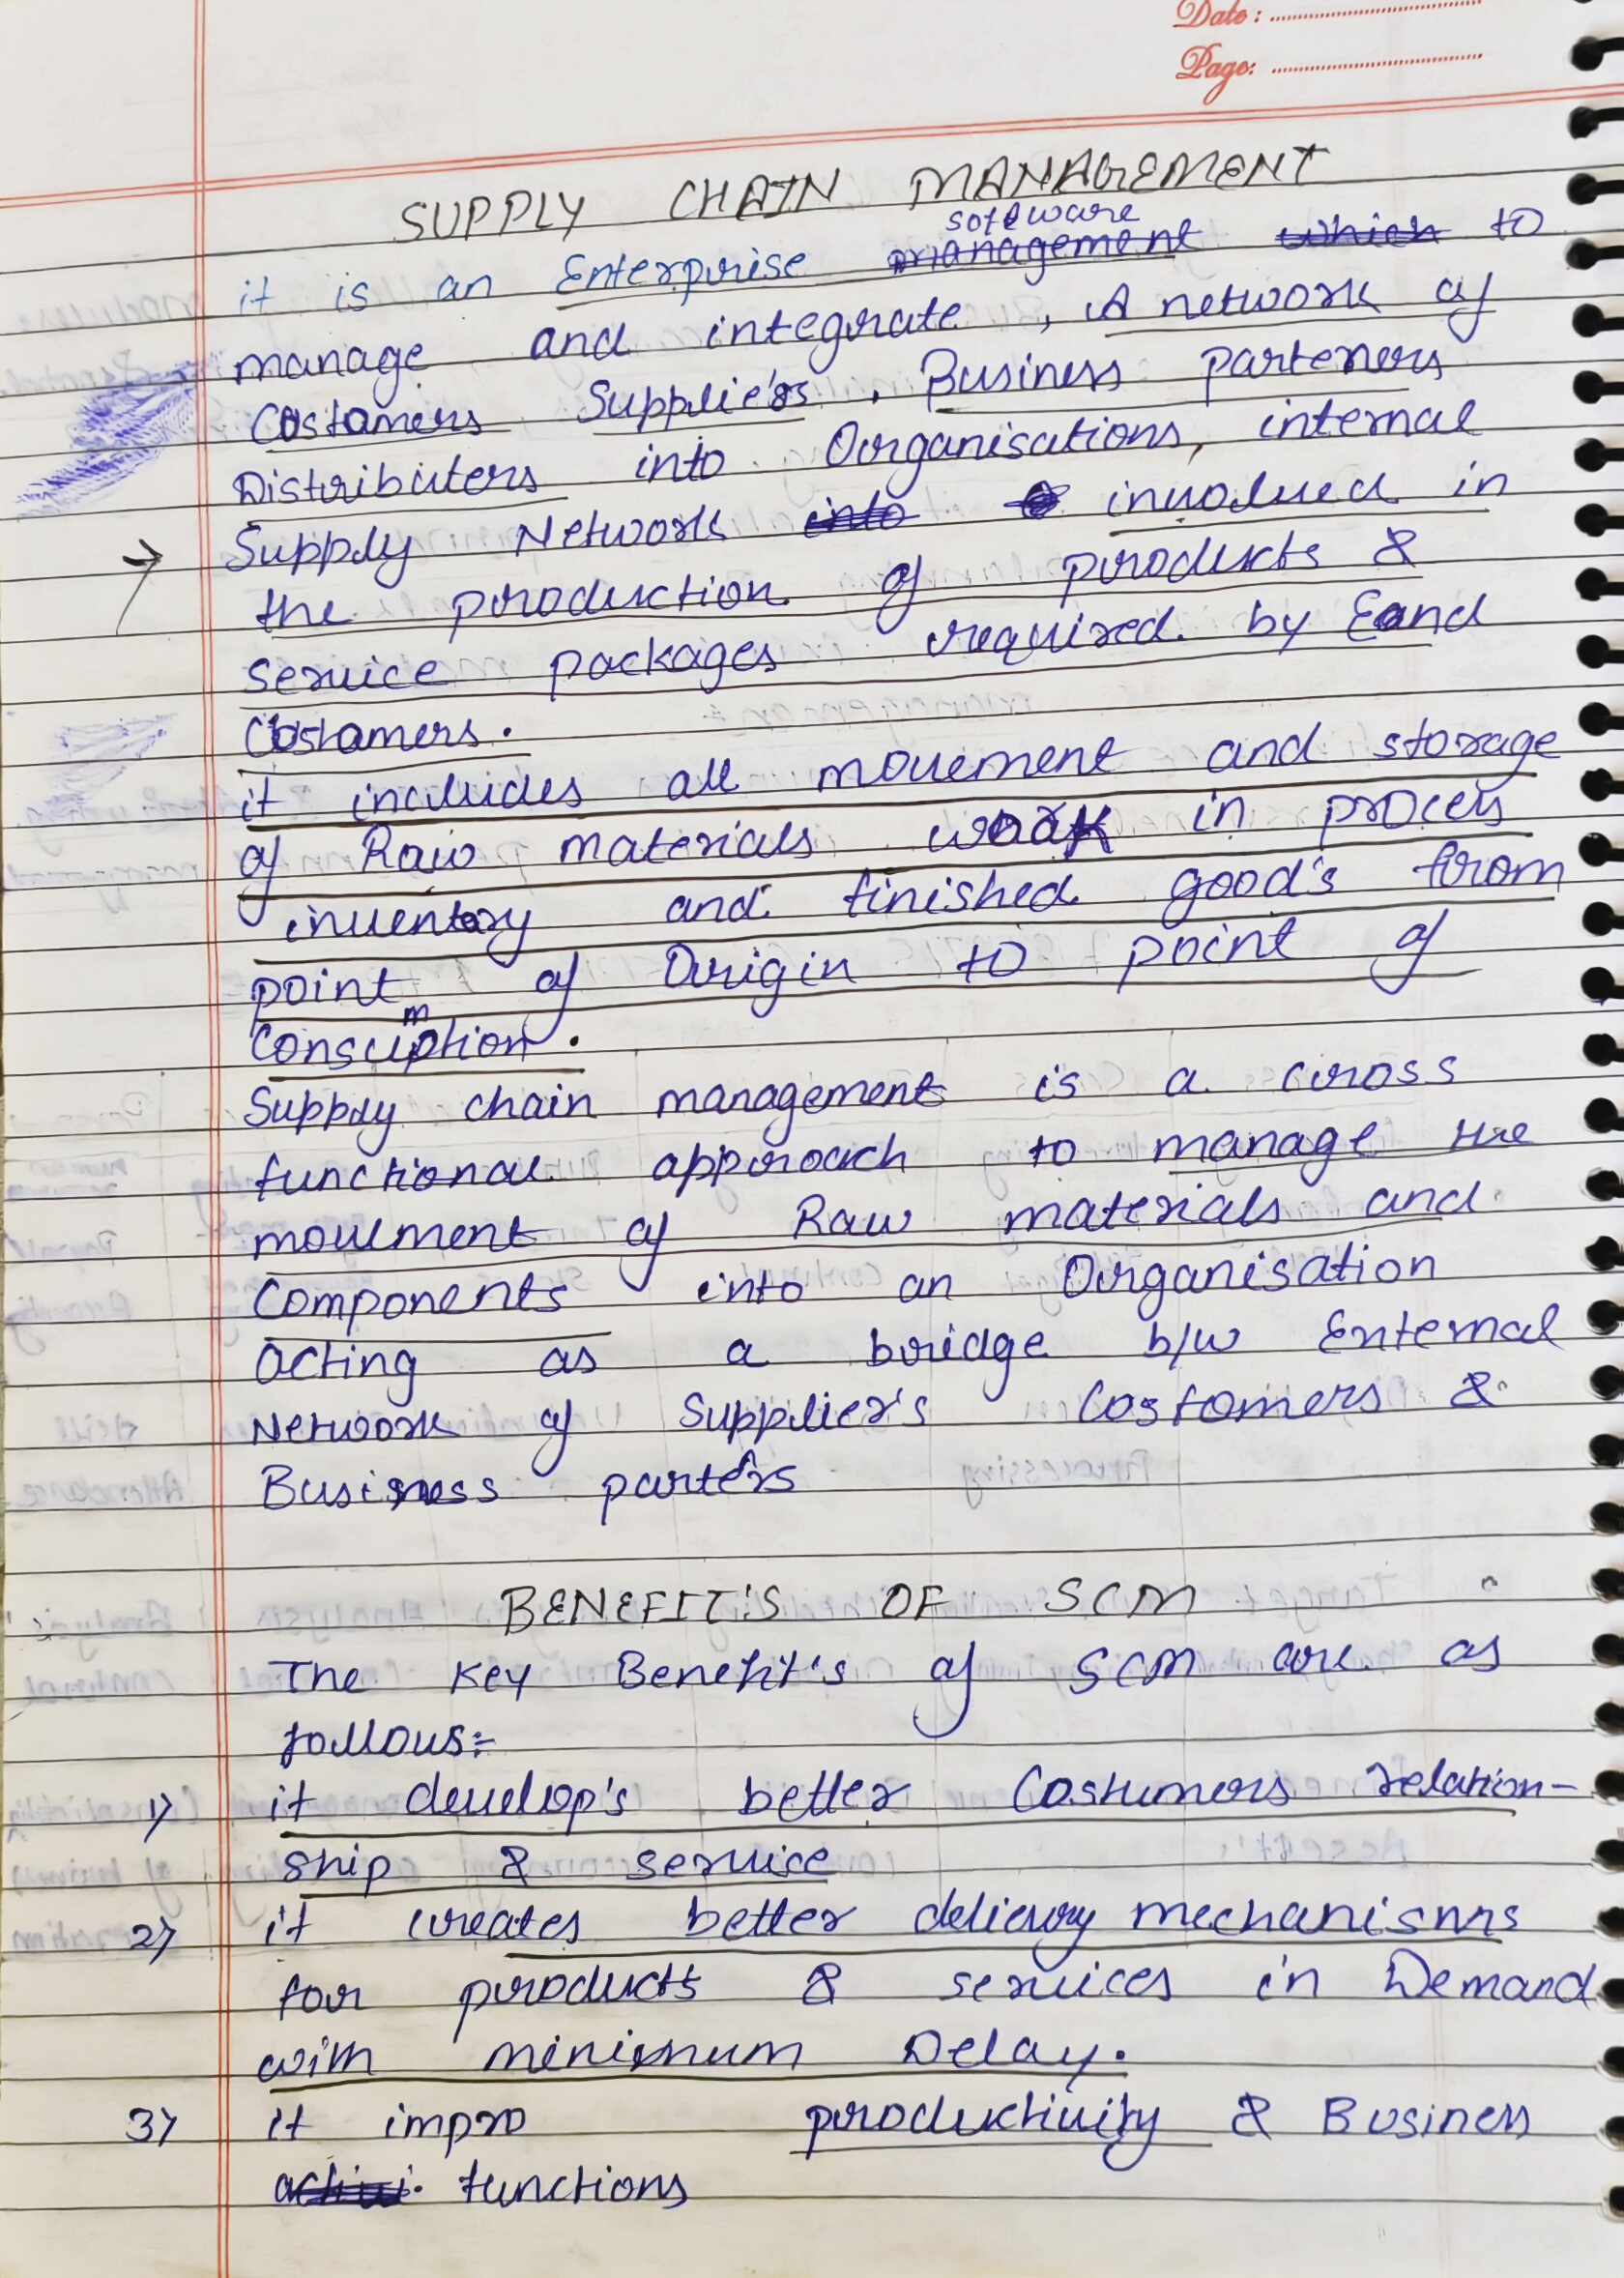 Date:
Page:
SUPPLY CHAIN MANAGEMENT
software
it is an Enterprise management which to
manage and integrate, A network of
Costamers Supplie's, Business parteners
Distributers into Organisations, internal
Supply Network into involved in
the production of products &
service packages required by Eand
Costamers.
it includes all movement and storage
of Raw materials work in process
inventory and finished good's from
point of Origin to point of
Consumption.
Supply chain management is a cross
functional approach to manage the
movment of Raw materials and
Components into an Organisation
acting as a bridge b/w External
Network of Supplier's Costomers &
Business parters
BENEFIT'S OF SCM
The Key Benefit's of SCM are as
follous:-
1) it develop's better Costumers relation-
ship & service
2) it creates better delievry mechanisms
for products & services in Demand
with minimum Delay.
3) it impro productivity & Business
activi. functions